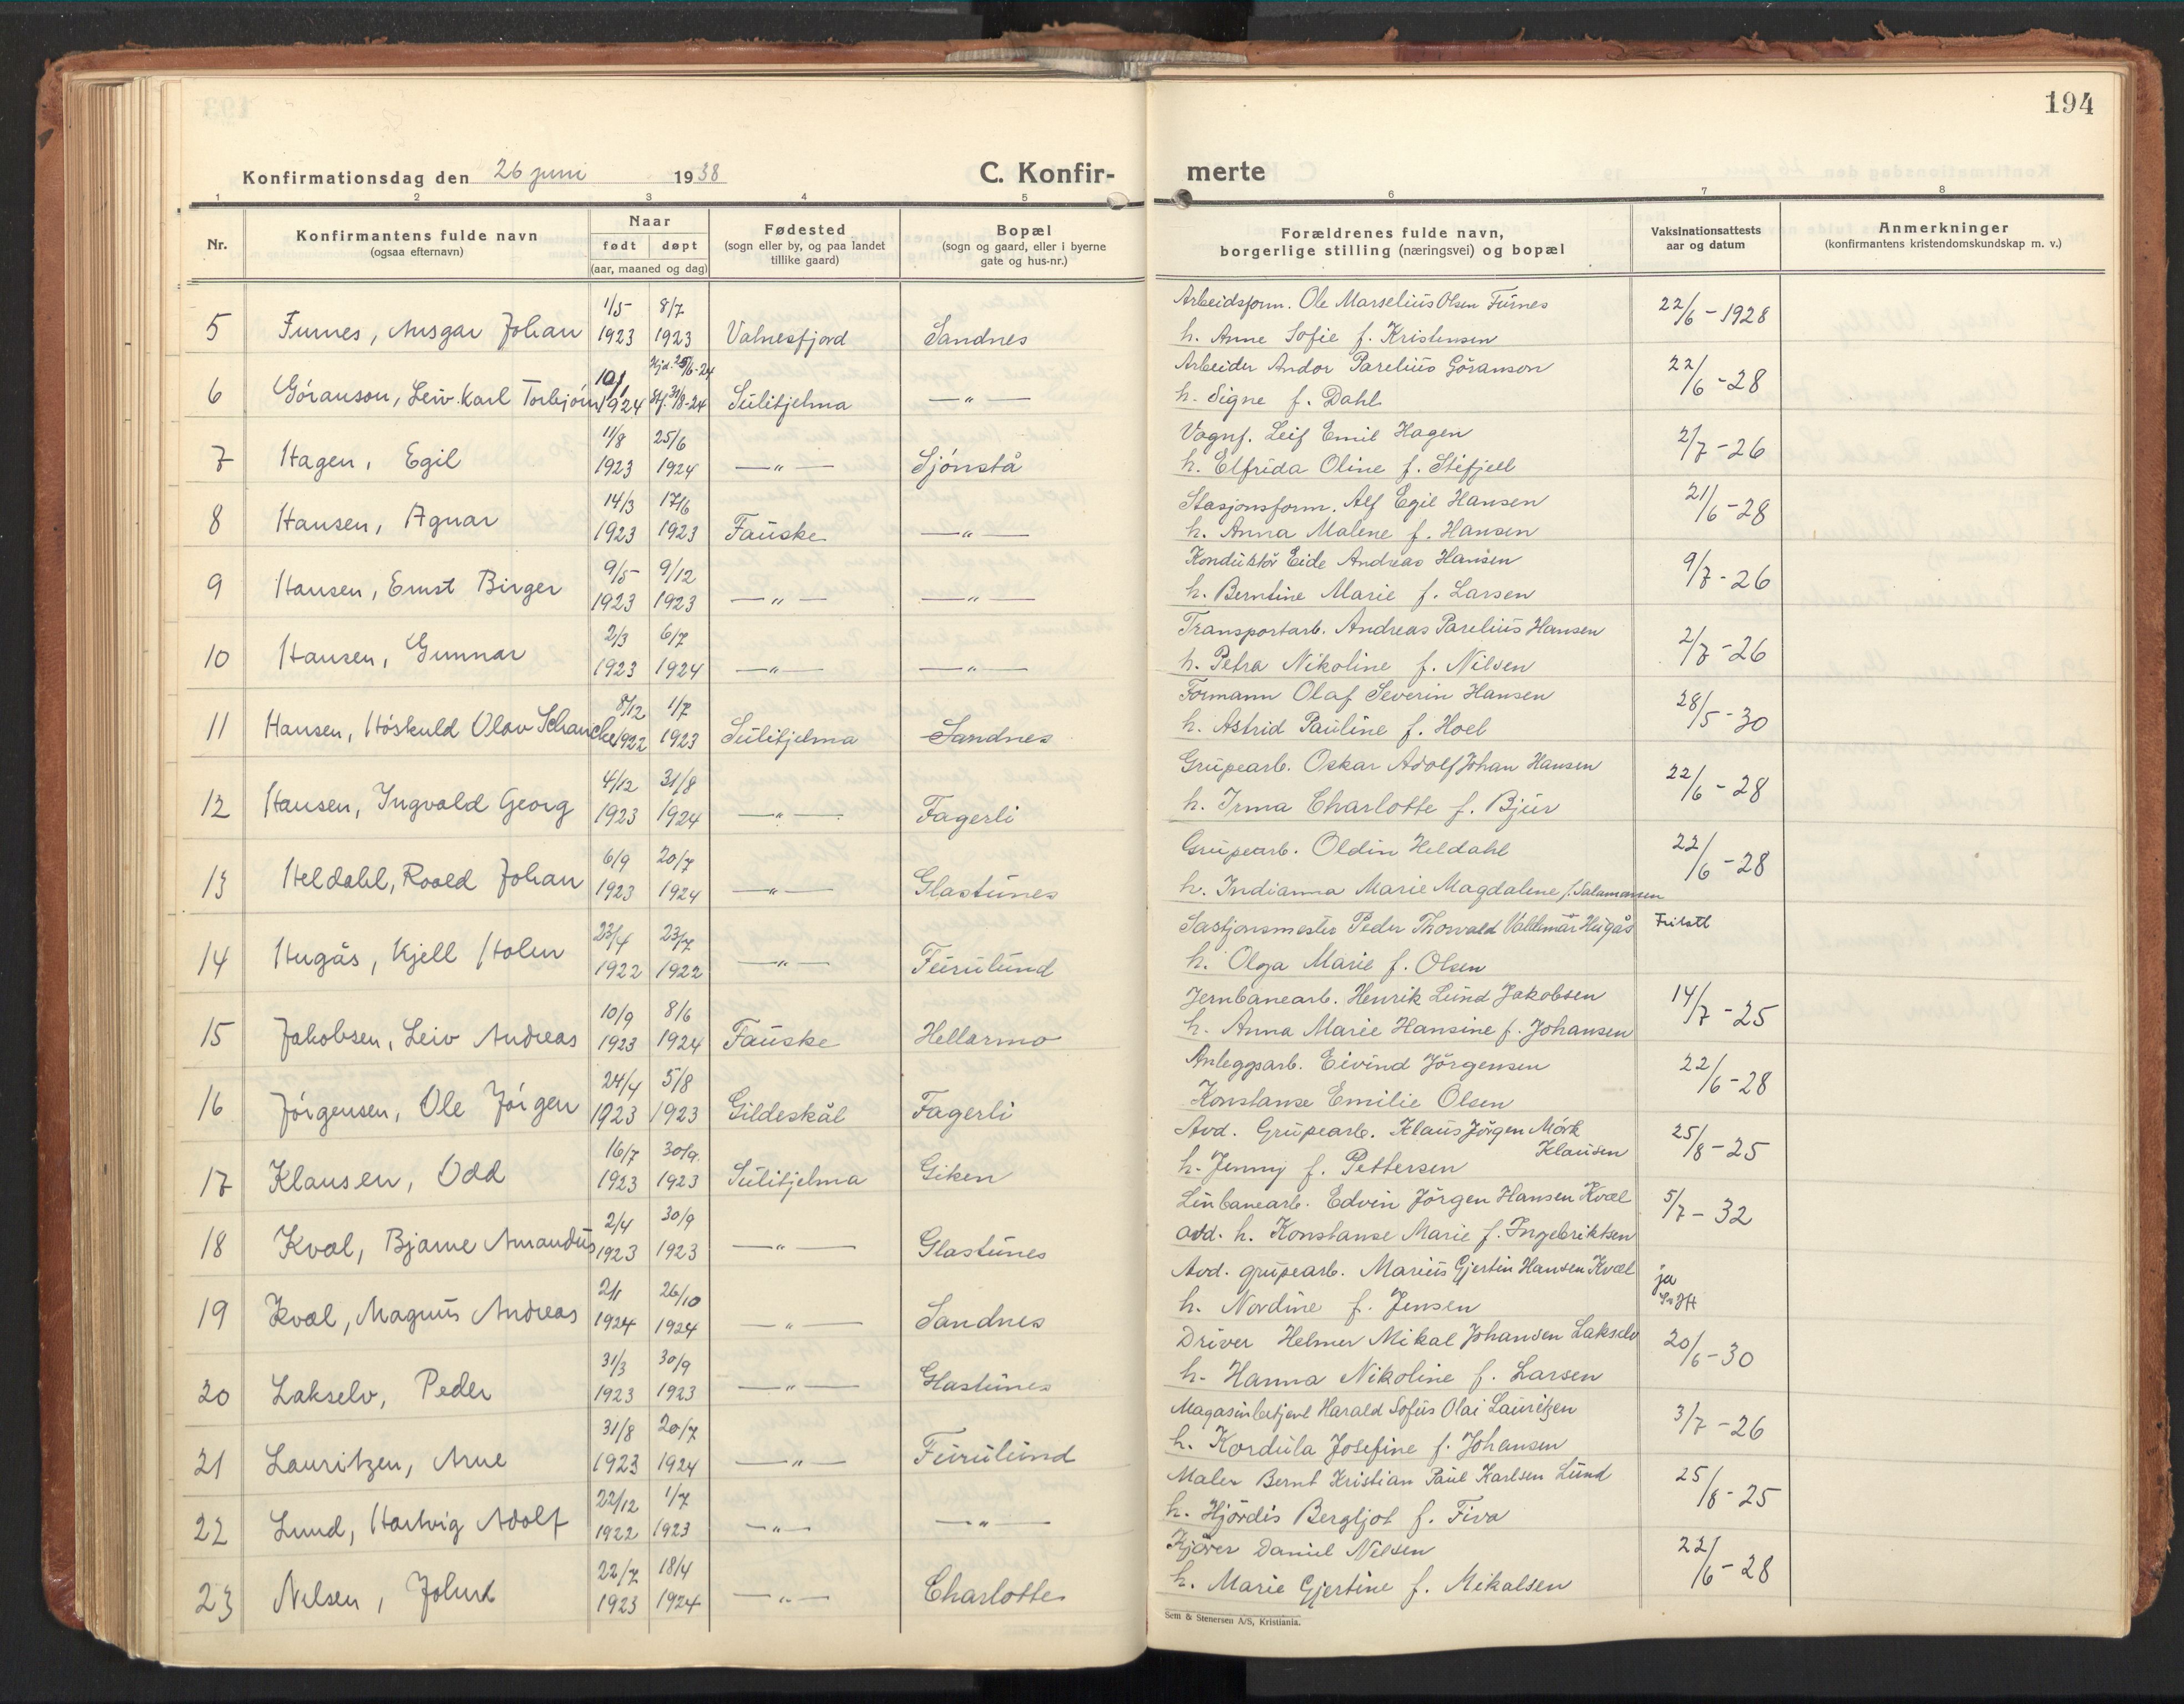 194
Konfirmationsdag den 26 juni 1938
C. Konfir-
merte
1 2 3 4 5 6 7 8
Nr.
Konfirmantens fulde navn
(ogsaa efternavn)
Naar
født døpt
(aar, maaned og dag)
Fødested
(sogn eller by, og paa landet
tillike gaard)
Bopæl
(sogn og gaard, eller i byerne
gate og hus-nr.)
Forældrenes fulde navn,
borgerlige stilling (næringsvei) og bopæl
Vaksinationsattests
aar og datum
Anmerkninger
(konfirmantens kristendomskundskap m. v.)
1/5 8/7 Arbeidsform. Ole Marselius Olsen Furnes 22/6-1928
5 Furnes, Ansgar Johan 1923 1923 Valnesfjord Sandnes h. Anne Sofie f. Kristensen
10/1 Hjd. 25/6-24 Arbeider Andor Parelius Göranson 22/6-28
6 Göranson, Leiv Karl Torbjörn 1924 Stf. 31/8-24 Sulitjelma —"— h. Signe f. Dahl
11/8 25/6 Vognf. Leif Emil Hagen 2/7-26
7 Hagen, Egil 1923 1924 —"— Sjönstå h. Elfrida Oline f. Stifjell
14/3 17/6 Stasjonsform. Alf Egil Hansen 21/6-28
8 Hansen, Agnar 1923 1923 Fauske —"— h. Anna Malene f. Hansen
9/5 9/12 Konduktör Eide Andreas Hansen 9/7-26
9 Hansen, Ernst Birger 1923 1923 —"— —"— h. Berntine Marie f. Larsen
2/3 6/7 Transportarb. Andreas Parelius Hansen 2/7-26
10 Hansen, Gunnar 1923 1924 —"— —"— h. Petra Nikoline f. Nilsen
8/12 1/7 Formann Olaf Severin Hansen 28/5-30
11 Hansen, Höskuld Olav Schancke 1922 1923 Sulitjelma Sandnes h. Astrid Pauline f. Hoel
4/12 31/8 Grupearb. Oskar Adolf Johan Hansen 22/6-28
12 Hansen, Ingvald Georg 1923 1924 —"— Fagerli h. Irma Charlotte f. Bjur
6/9 20/7 Grupearb. Oldin Heldahl 22/6-28
13 Heldahl, Roald Johan 1923 1924 —"— Glastunes h. Indianna Marie Magdalene f. Salamonsen
23/4 23/7 Sastjonsmester Peder Thorvald Valdemar Hugås
14 Hugås, Kjell Holm 1922 1922 —"— Furulund h. Olga Marie f. Olsen
10/9 8/6 Jernbanearb. Henrik Lund Jakobsen 14/7-25
15 Jakobsen, Leiv Andreas 1923 1924 Fauske Hellarmo h. Anna Marie Hansine f. Johansen
24/4 5/8 Anleggsarb. Eivind Jörgensen 22/6-28
16 Jörgensen, Ole Jörgen 1923 1923 Gildeskål Fagerli Konstanse Emilie Olsen
16/7 30/9. Avd. Grupearb. Klaus Jörgen Mörk Klausen 25/8-25
17 Klausen, Odd 1923 1923 Sulitjelma Giken h. Jenny f. Pettersen
2/4 30/9 Linbanearb. Edvin Jörgen Hansen Kvæl 5/7-32
18 Kvæl, Bjarne Amandus 1923 1923 —"— Glastunes avd. h. Konstanse Marie f. Ingebriktsen
2/1 26/10 Avd. grupearb. Marius Gjertin Hansen Kvæl ja
19 Kvæl, Magnus Andreas 1924 1924 —"— Sandnes h. Nordine f. Jensen
31/3 30/9 Driver Helmer Mikal Johansen Lakselv 20/6-30
20 Lakselv, Peder 1923 1923 —"— Glastunes h. Hanna Nikoline f. Larsen
31/8 20/7 Magasinbetjent Harald Sofus Olai Lauritzen 3/7-26
21 Lauritzen, Arne 1923 1924 —"— Furulund h. Kordula Josefine f. Johansen
22/12 1/7 Maler Bernt Kristian Paul Karlsen Lund 25/8-25
22 Lund, Hartvig Adolf 1922 1923 —"— —"— h. Hjördis Bergljot f. Fiva
22/7 18/4 Kjörer Daniel Nilsen 22/6-28
23 Nilsen, 1923 1924 —"— Charlotte h. Marie Gjertine f. Mikalsen
Sem & Stenersen A/S, Kristiania.